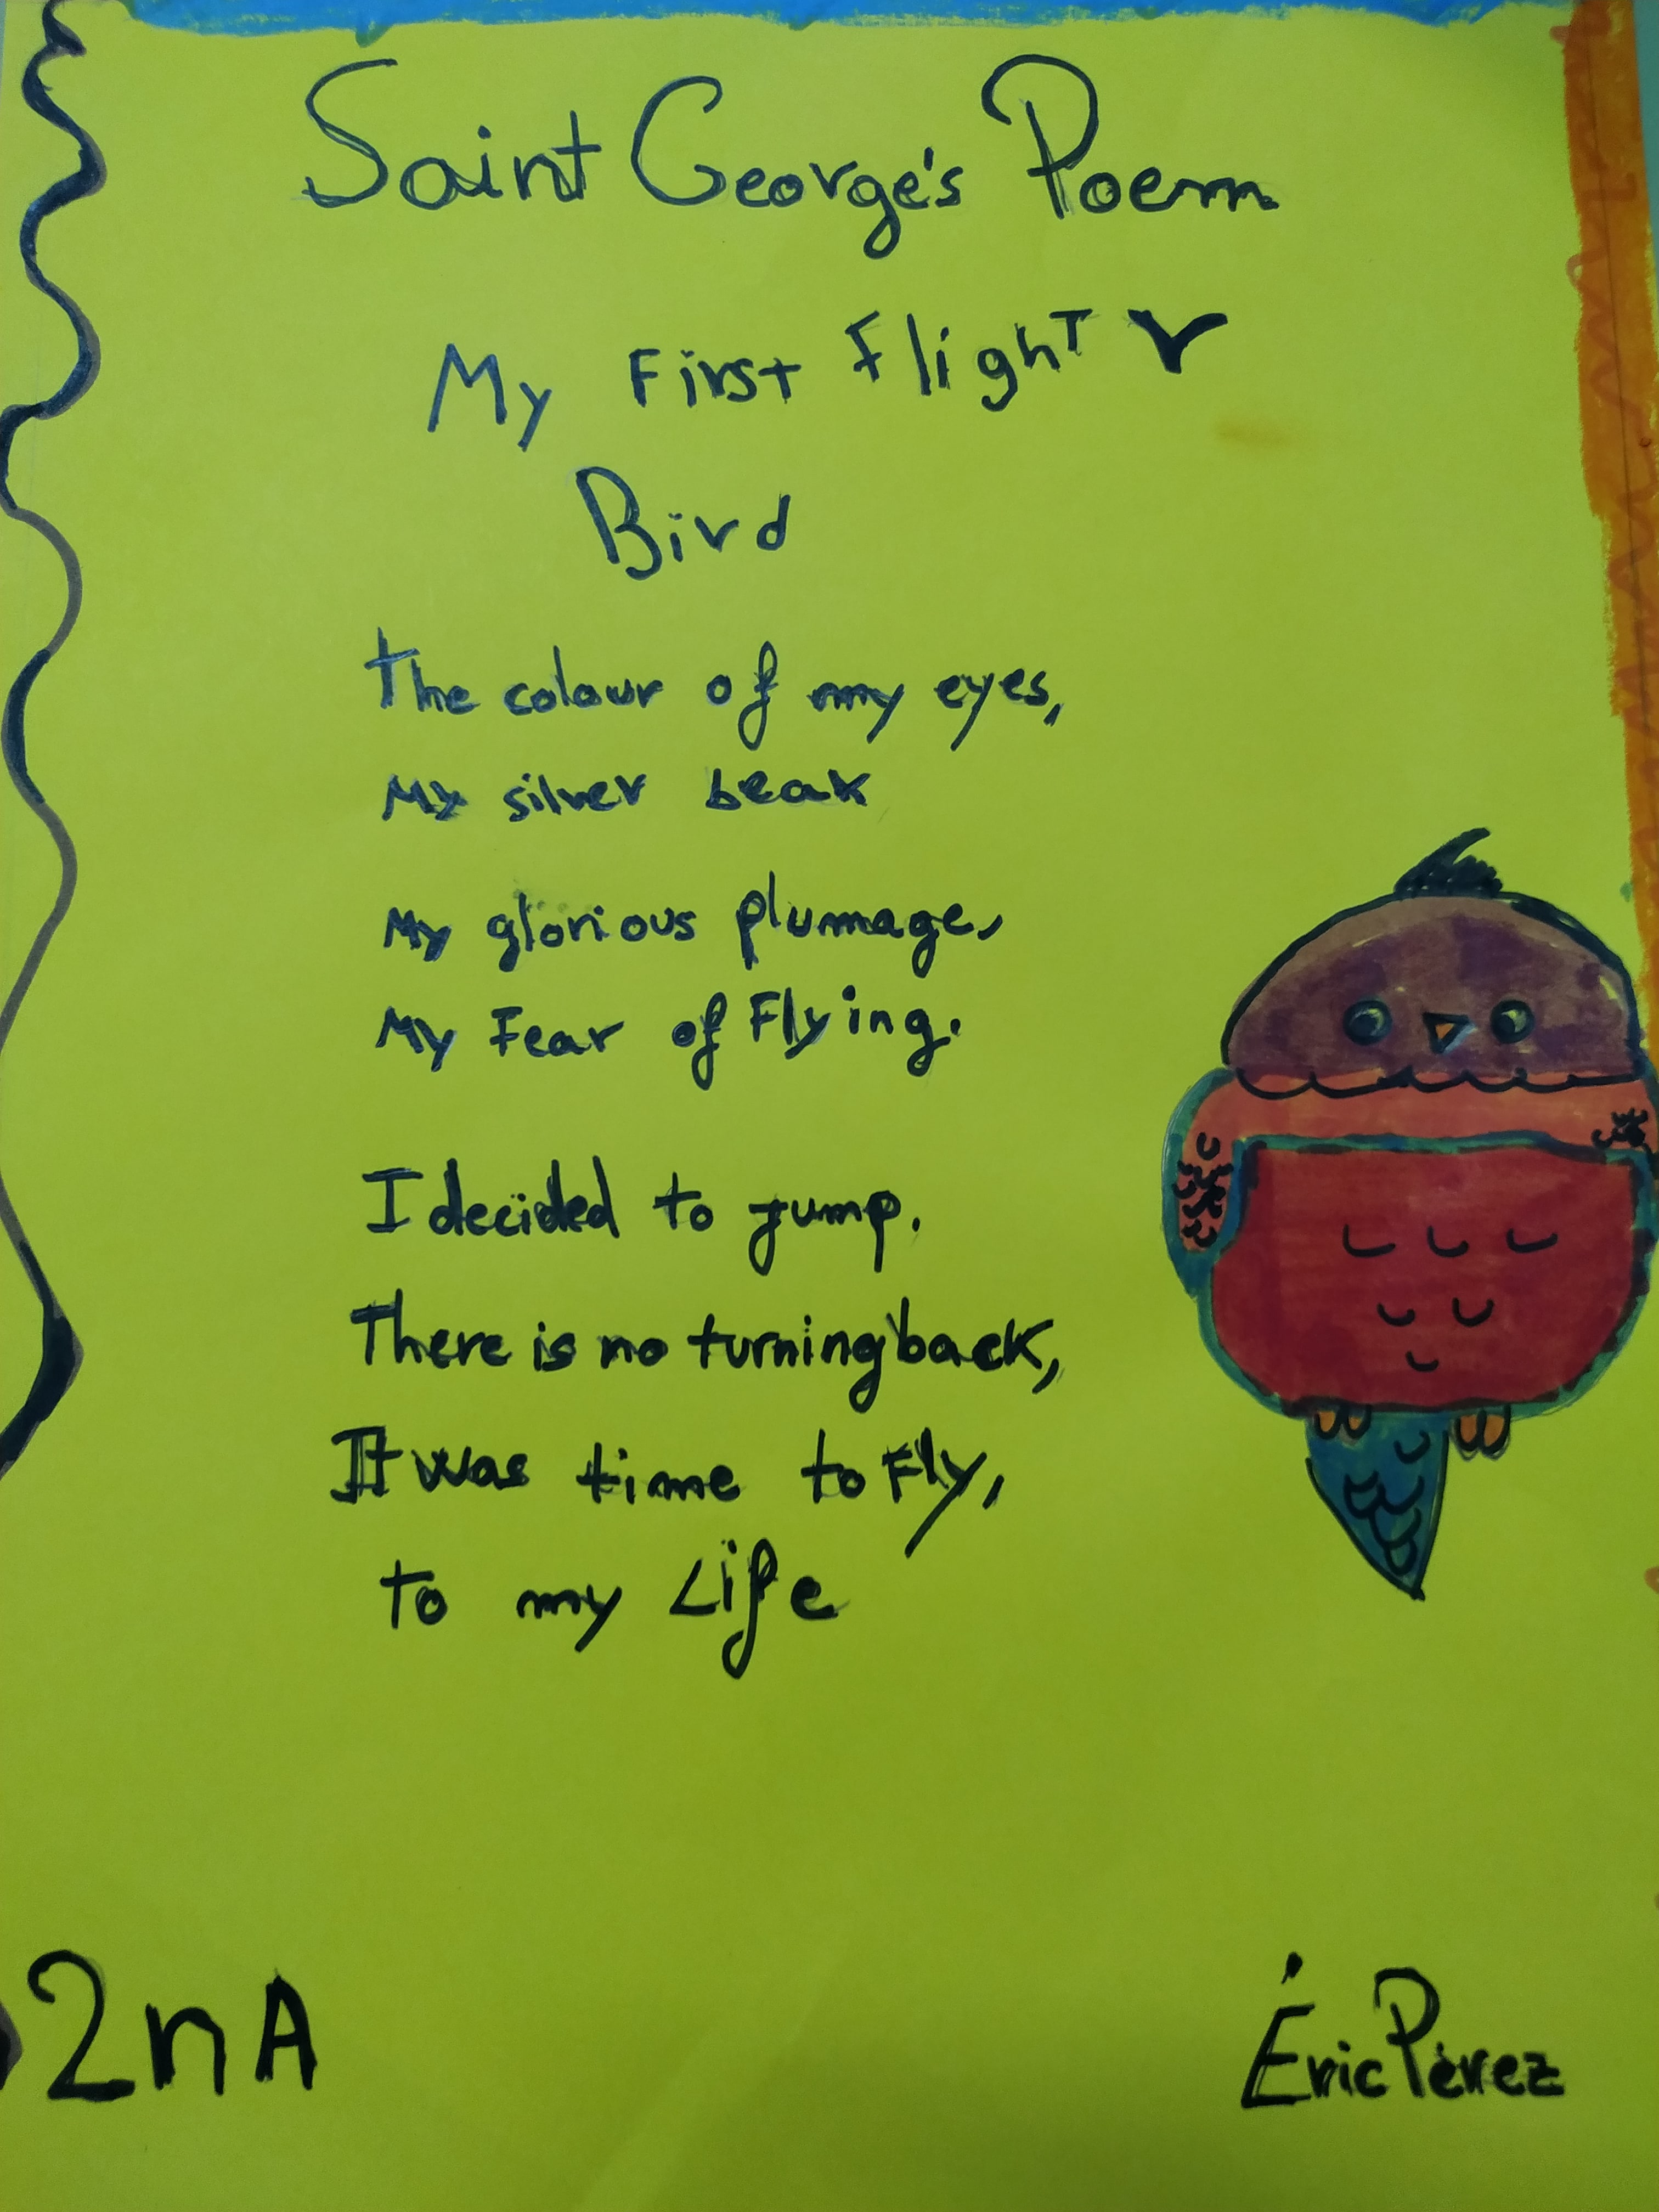 Saint George's Poem
My First Flight
Bird
The colour of my eyes,
My silver beak
My glorious plumage,
My Fear of Flying.
I decided to jump.
There is no turning back,
It was time to Fly,
to my Life
2nA
Éric Pérez